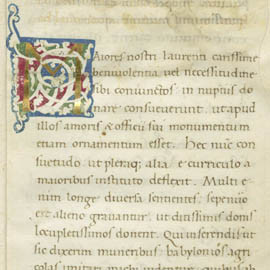 Aiores nostri laurenti carissime
benivolentia vel necessitudine
sibi coniunctos in nuptiis do
nare consueverunt ut apud
illos amoris & officii sui monumentum
etiam ornamentum esset. Hec nunc con
suetudo ut pleriq; alia e curriculo a
maioribus instituto deflexit. Multi e
nim longe diversa sentientes, sepenume
ero alieno gravantur ut ditissimos domi
locupletissimos donent. Qui inserendis ut
sic dixerim muneribus babylonios agri
colas imitari michi videntur